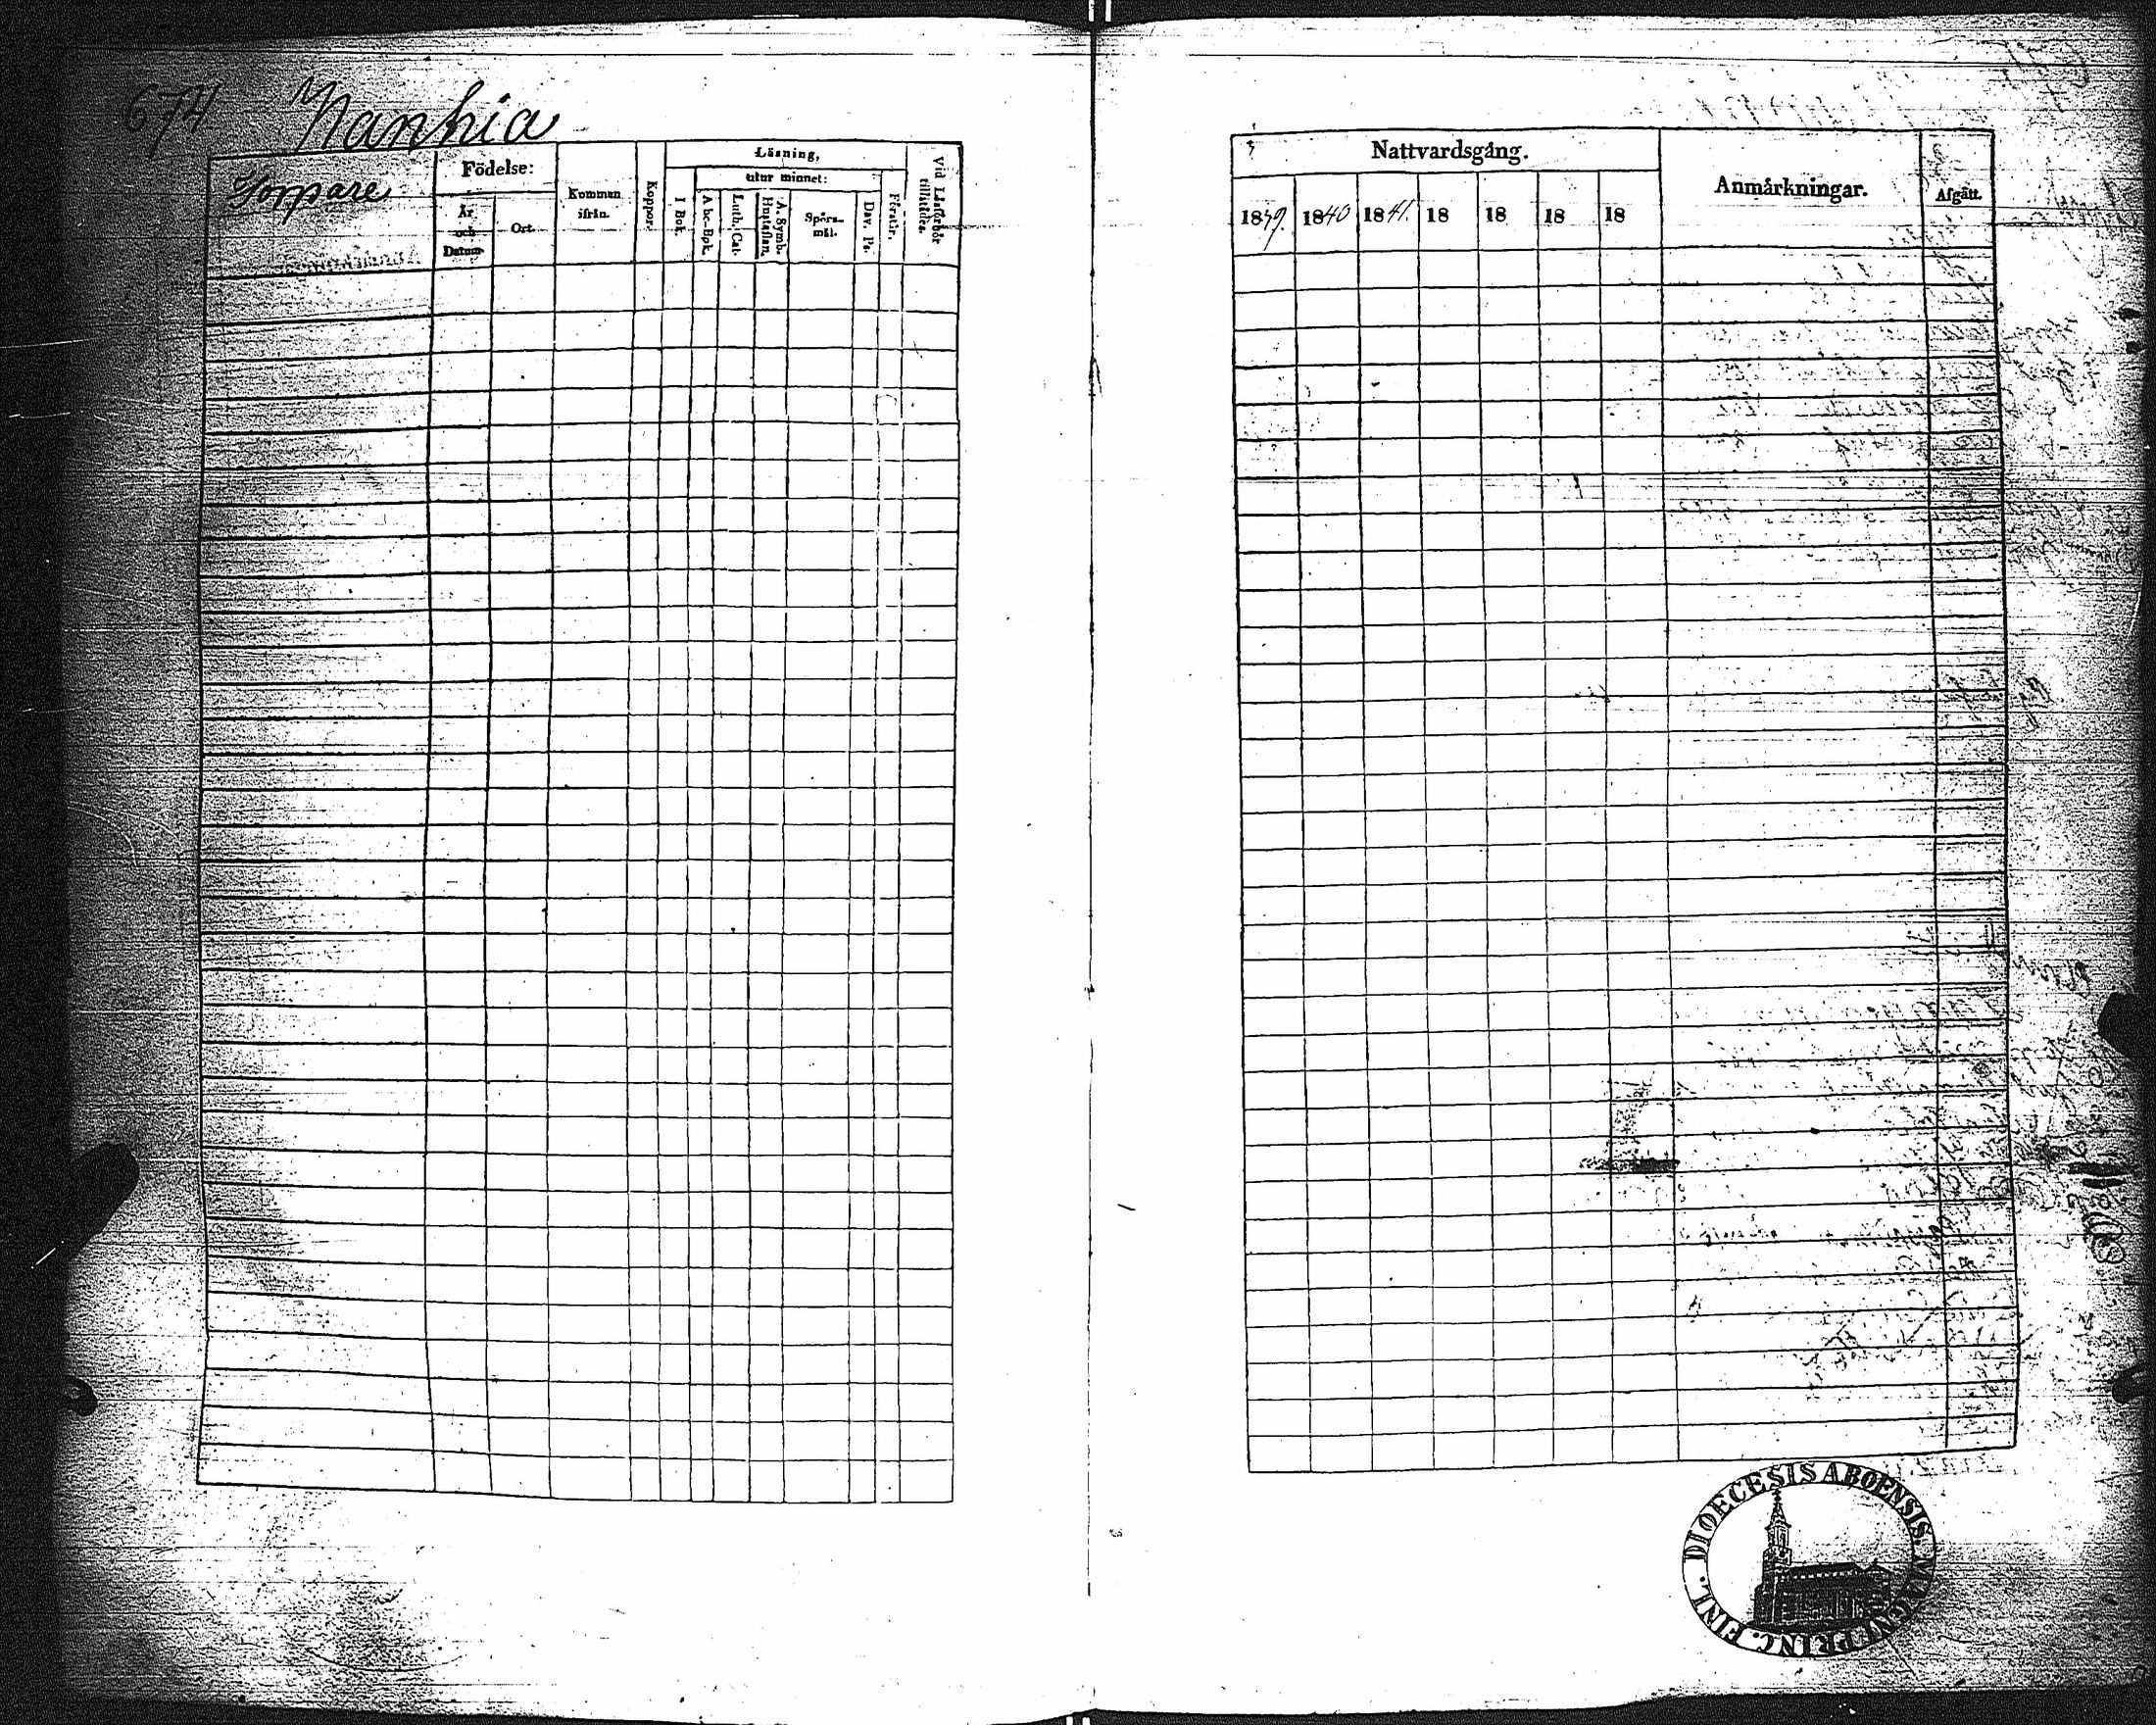 674 Wanhia
Torpare
Födelse:
År och Datum
Ort.
Kommen ifrån.
Koppor.
Läsning,
utur minnet:
I Bok.
A b c-Bok.
Luth. Cat.
A. Symb. Hustaflan.
Spörsmål.
Dav. Ps.
Förstår.
Vid Läsförhör tillstädes.
Nattvardsgång.
1839. 1840 1841. 18 18 18 18
Anmärkningar.
Afgått.
DIOECESIS ABOENSIS. MAGNI PRINC. FINL.